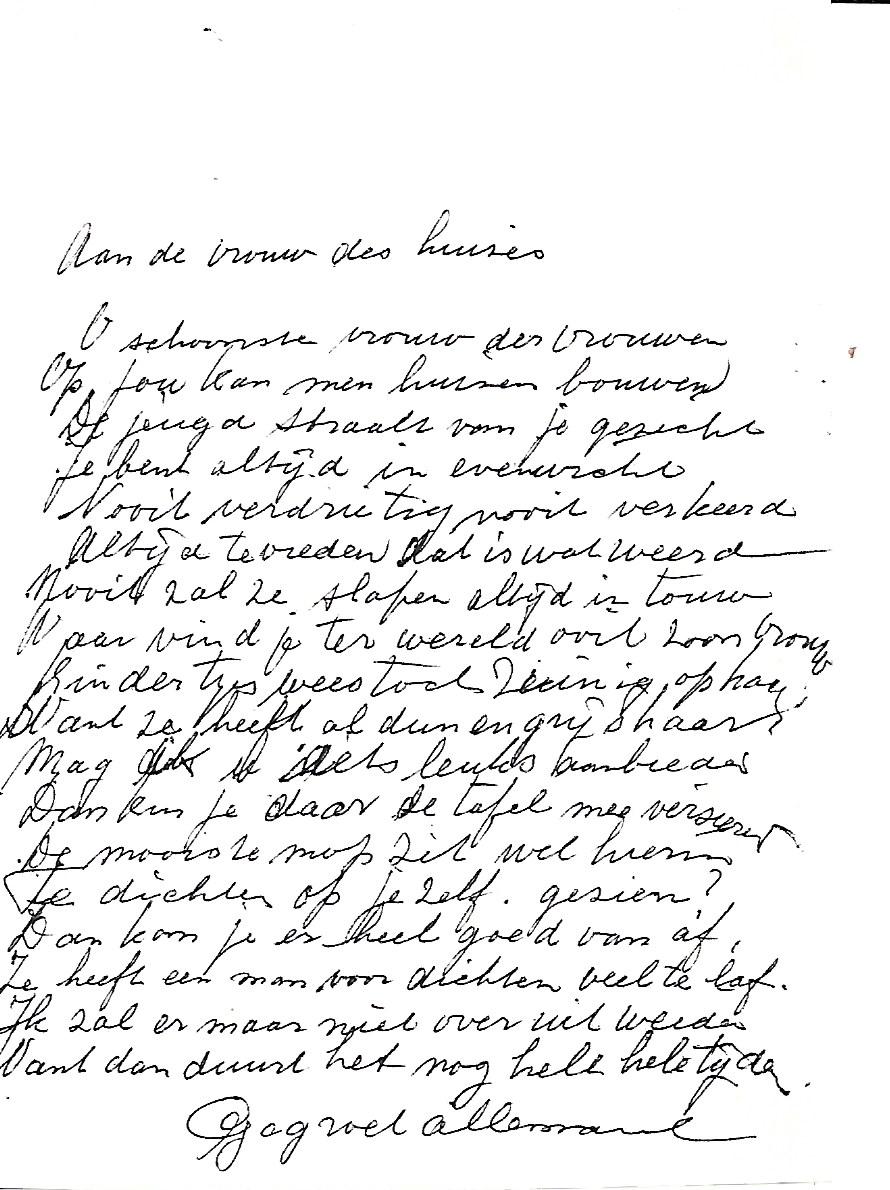 Aan de vrouw des huizes
O schoonste vrouw der vrouwen
Op jou kan men huizen bouwen
De jeugd straalt van je gezicht
Je bent altijd in evenwicht
Nooit verdrietig nooit verkeerd
Altijd tevreden dat is wat weerd
Nooit zal ze slapen altijd in touw
Waar vind je ter wereld ooit zoon vrouw
Kindertjes wees toch zuinig op haar
Want ze heeft al dun en grijs haar
Mag u iets leuks aanbieden
Dan kun je daar de tafel mee versieren
De mooiste mop zit wel hierin
Te dichten op je zelf. gezien?
Dan kom je er heel goed van af,
Ze heeft een man voor dichten veel te laf.
Ik zal er maar niet over uit weiden
Want dan duurt het nog hele hele tijden.
allemaal